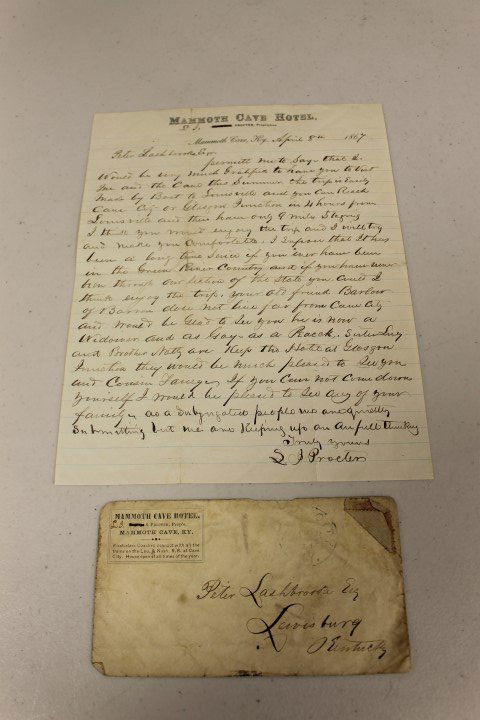 MAMMOTH CAVE HOTEL.
L J. PROCTOR, Proprietor.
Mammoth Cave, Ky. April 8th 1867
Peter Lashbrooke Esqr
permitt me to Say that I
Would be very much Gratified to have you to visit
me and the Cave this Summer the trip is Easily
made by Boat to Louisville and you Can Reach
Cave City or Glasgow Junction in 4 hours from
Louisville and then have only 9 miles Staging
I think you would enjoy the trip and I will try
and make you Comfortable. I Supose that It has
been a long time Since if you ever have been
in the Green River Country and if you have never
been through our Section of the State you would I
think enjoy the trip. Your old friend Barlow
of Barren does not live far from Cave City
and would be Glad to See you he is now a
Widower and as Gay as a Racek. Sister
and Brother are Keep the Hotel at Glasgow
Junction they would be much pleased to See you
and Cousin If you Can not Come down
yourself I would be pleased to See any of your
family. as a Subjugated people we are quietly
Submitting but we are Keeping up an Awfull thinking
Truly yours
L J Procter
MAMMOTH CAVE HOTEL.
L J. & PROCTOR, Prop's.
MAMMOTH CAVE, KY.
First-class Coaches connect with all the
trains on the Lou. & Nash. R.R. at Cave
City. House open at all times of the year.
Peter Lashbrooke Esq
Lewisburg
Kentucky